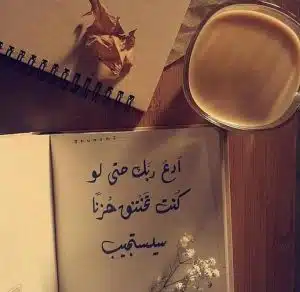 أدعُ ربَك حتى لو
كُنت تختنق حُزنًا
سيستجيب